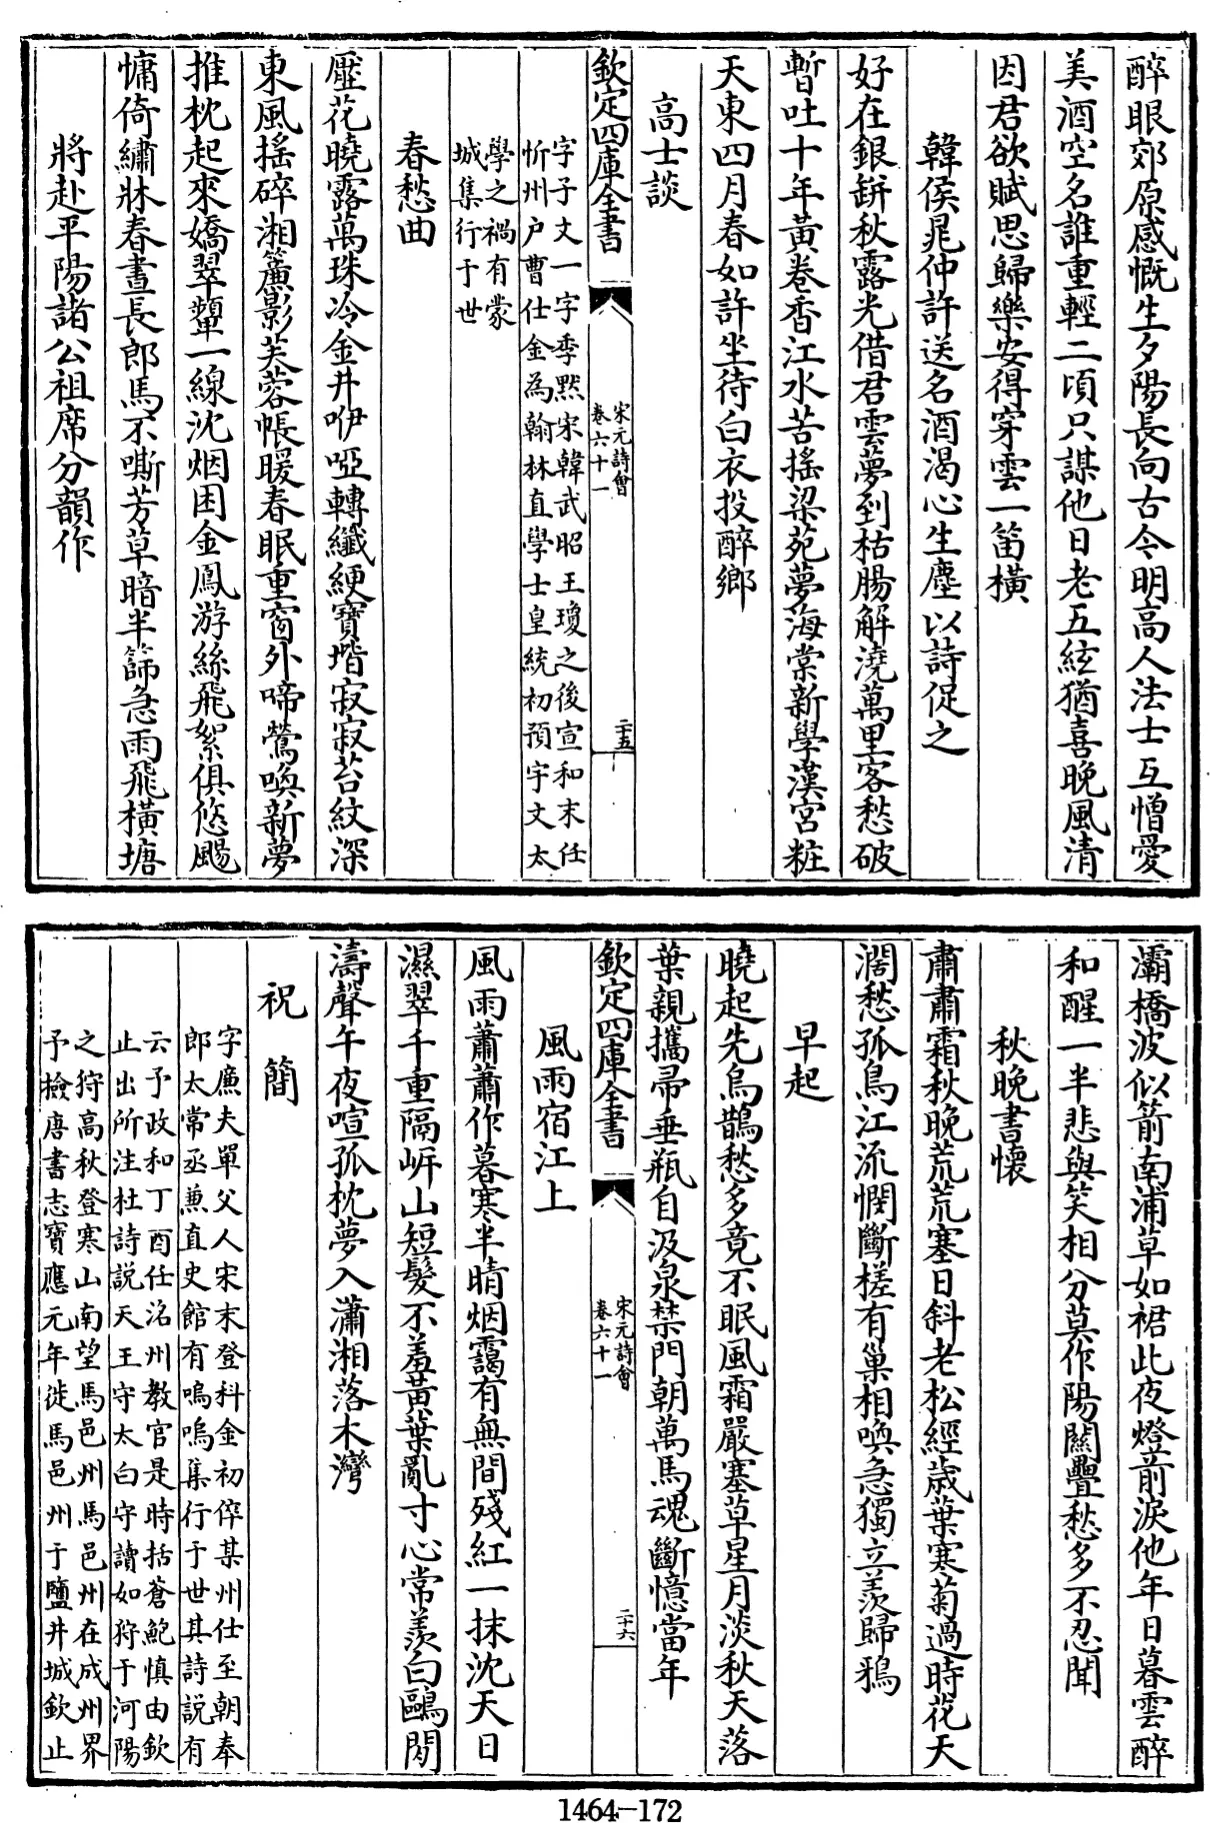 醉眼郊原感慨生夕陽長向古今明高人法士互憎愛
美酒空名誰重輕二頃只謀他日老五絃猶喜晚風清
因君欲賦思歸樂安得穿雲一笛橫
韓侯晁仲許送名酒渴心生塵以詩促之
好在銀缾秋露光借君雲夢到枯腸解澆萬里客愁破
暫吐十年黃卷香江水苦搖梁苑夢海棠新學漢宮粧
天東四月春如許坐待白衣投醉鄉
高士談
欽定四庫全書
宋元詩會
卷六十一
二十五
字子文一字季默宋韓武昭王瓊之後宣和末任
忻州户曹仕金為翰林直學士皇統初預宇文太
學之禍有蒙
城集行于世
春愁曲
壓花曉露萬珠冷金井咿啞轉纖綆寶堦寂寂苔紋深
東風搖碎湘簾影芙蓉帳暖春眠重窗外啼鶯喚新夢
推枕起來嬌翠顰一線沈烟困金鳳游絲飛絮俱悠颺
慵倚繡牀春晝長郎馬不嘶芳草暗半篩急雨飛橫塘
將赴平陽諸公祖席分韻作
灞橋波似箭南浦草如裙此夜燈前淚他年日暮雲醉
和醒一半悲與笑相分莫作陽關疊愁多不忍聞
秋晚書懷
肅肅霜秋晚荒荒塞日斜老松經歲葉寒菊過時花天
濶愁孤鳥江流憫斷槎有巢相喚急獨立羡歸鴉
早起
曉起先烏鵲愁多竟不眠風霜嚴塞草星月淡秋天落
葉親攜帚垂瓶自汲泉禁門朝萬馬魂斷憶當年
欽定四庫全書
宋元詩會
卷六十一
二十六
風雨宿江上
風雨蕭蕭作暮寒半晴烟靄有無間殘紅一抹沈天日
濕翠千重隔岍山短髮不羞黃葉亂寸心常羨白鷗閒
濤聲午夜喧孤枕夢入瀟湘落木灣
祝簡
字廉夫單父人宋末登科金初倅某州仕至朝奉
郎太常丞兼直史館有嗚嗚集行于世其詩說有
云予政和丁酉任洺州教官是時括蒼鮑慎由欽
止出所注杜詩説天王守太白守讀如狩于河陽
之狩高秋登寒山南望馬邑州馬邑州在成州界
予檢唐書志寶應元年徙馬邑州于鹽井城欽止
1464-172